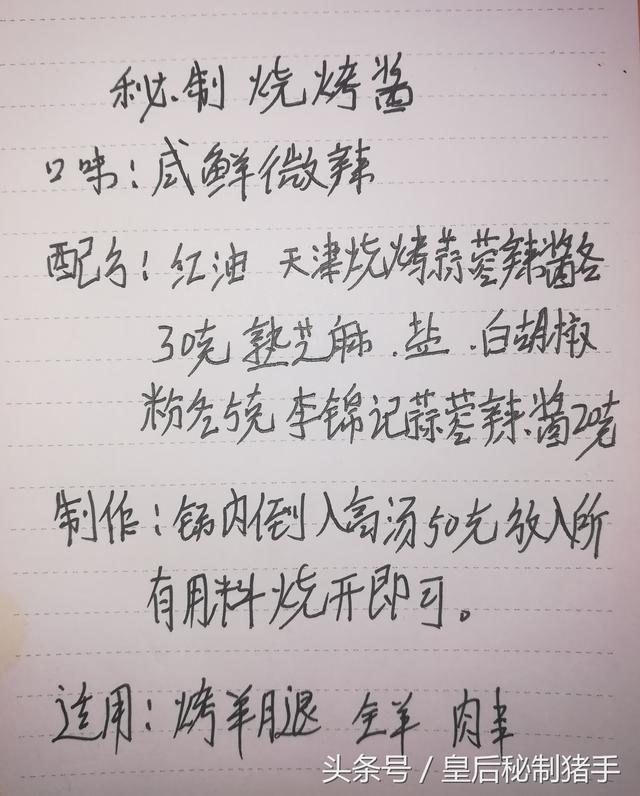 秘制烧烤酱
口味：咸鲜微辣
配方：红油 天津烧烤蒜蓉辣酱各
30克 熟芝麻.盐.白胡椒
粉各5克 李锦记蒜蓉辣酱20克
制作：锅内倒入高汤50克放入所
有用料烧开即可。
适用：烤羊腿 全羊 肉串
头条号 / 皇后秘制猪手